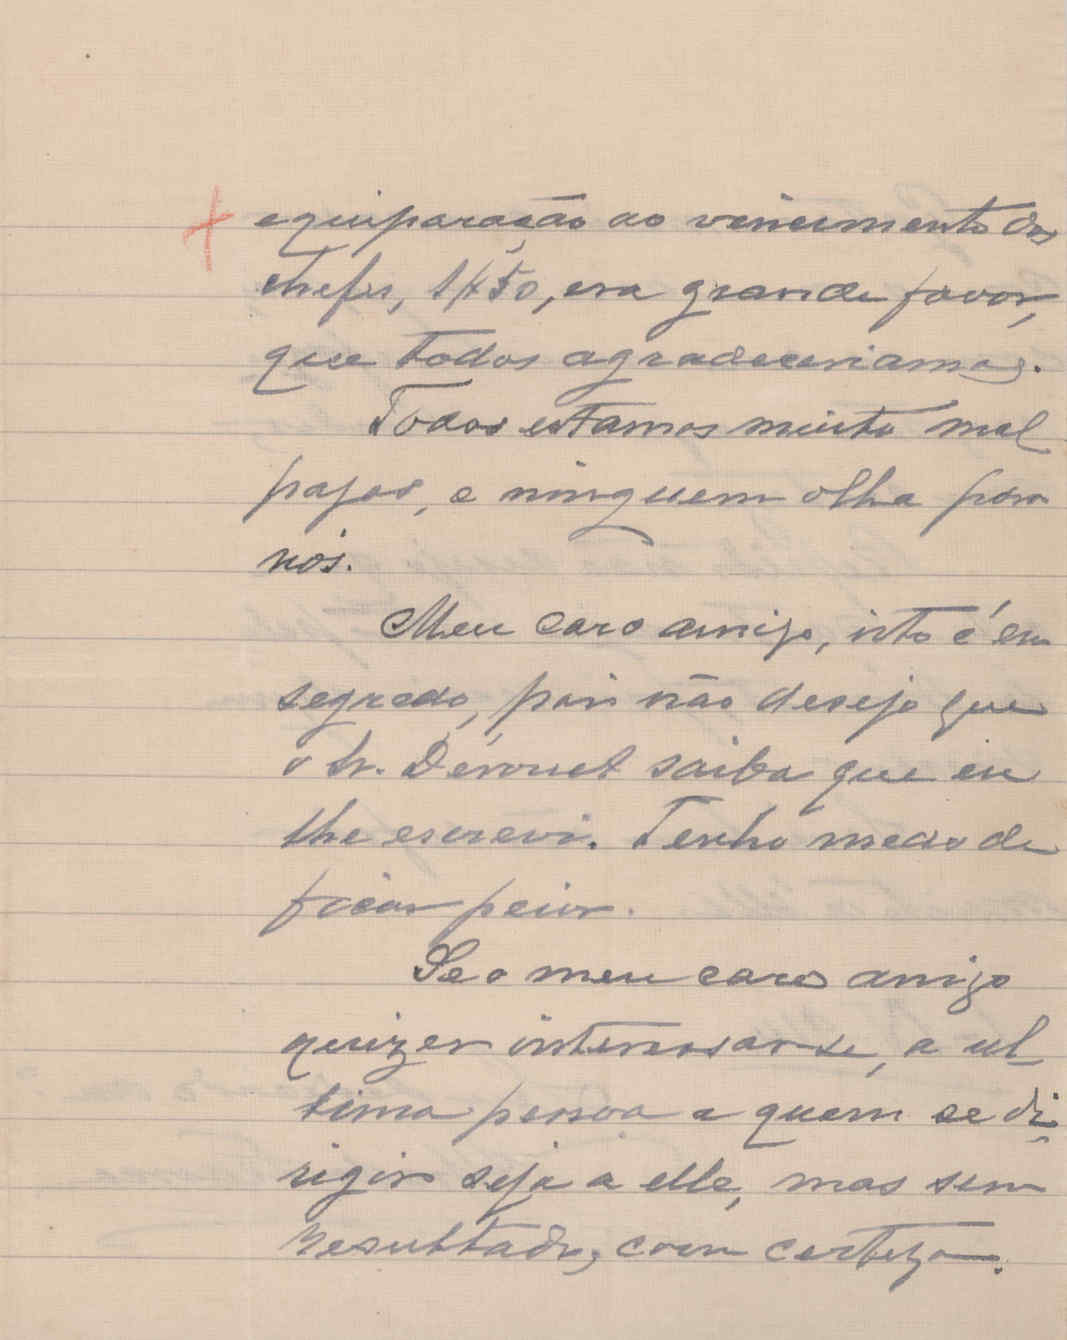 equiparação ao vencimento dos
chefes, 1$50, era grande favor,
que todos agradeceriamos.
Todos estamos muito mal
pagos, e ninguem olha para
nós.
Meu caro amigo, isto é em
segredo, pois não desejo que
o Sr. Dérouet saiba que eu
lhe escrevi. Tenho medo de
ficar peior.
Se o meu caro amigo
quizer interessar-se, a ul
tima pessoa a quem se di-
rigir seja a elle, mas sem
resultado, com certeza.